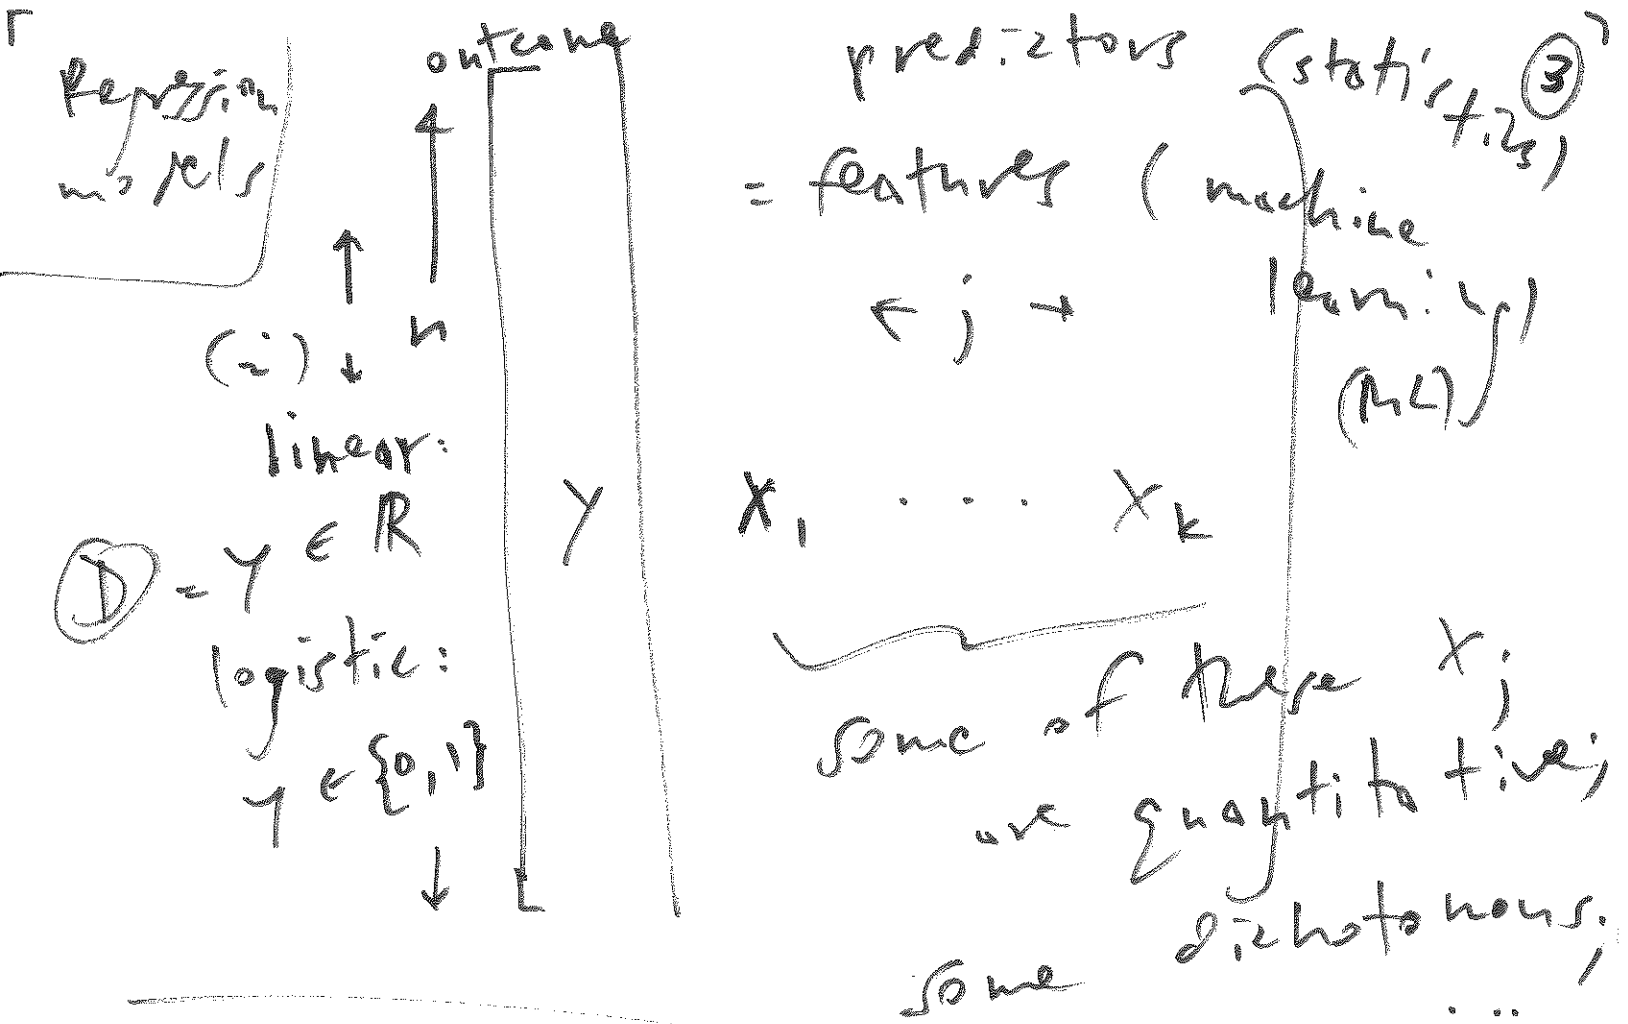 Regression
models
outcome
predictors (statistics)
3
= features (machine
learning)
(ML)
← j →
(i)
n
linear:
D = y ∈ ℝ
logistic:
y ∈ {0, 1}
y
x₁ . . . xₖ
some of these xⱼ
are quantitative;
some dichotomous;
...